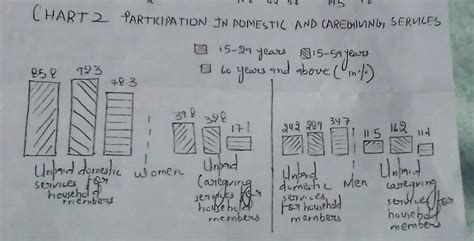 CHART 2 PARTICIPATION IN DOMESTIC AND CAREGIVING SERVICES
15-29 years 15-59 years
60 years and above (in %)
85.8 92.3 78.3
39.8 38.8 17.1
24.2 28.9 34.7
11.5 16.2 11.4
Unpaid domestic
services for
household
members
Women
Unpaid
Caregiving
services for
household
members
Unpaid
domestic
services
for household
members
Men
Unpaid
caregiving
services for
household
members